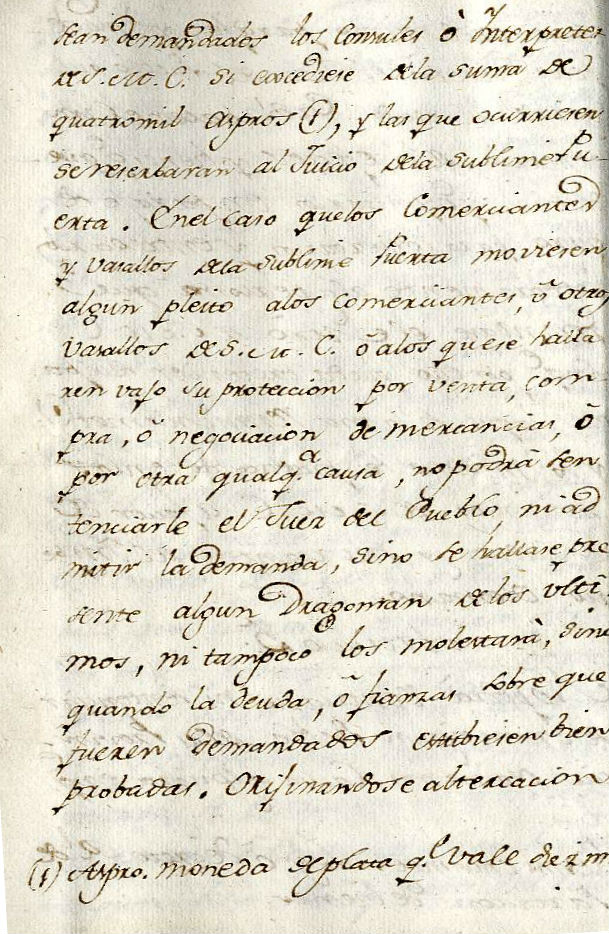 sean demandados los Consules ò Interpretes
de S. M. C. si excediese dela suma de
quatromil Aspros (1), y las que ocurriesen
se reserbaran al Juicio dela sublime Pu-
erta. En el caso quelos Comerciantes
y Vasallos dela sublime Puerta moviesen
algun pleito alos comerciantes, û otros
Vasallos de S. M. C. ô alos que se halla
ren vajo su proteccion por venta, com
pra, ô negociacion de mercancias, ô
por otra qualq.ª causa, no podrà sen
tenciarle el Juez del Pueblo, ni ad
mitir la demanda, sino se hallase pre
sente algun Dragoman delos ulti
mos, ni tampoco los molestarà, sino
quando la deuda, ô fianzas sobre que
fueren demandados estubiesen bien
probadas. Orijinandose altercacion
(1) Aspro. moneda de plata q.e vale diez m